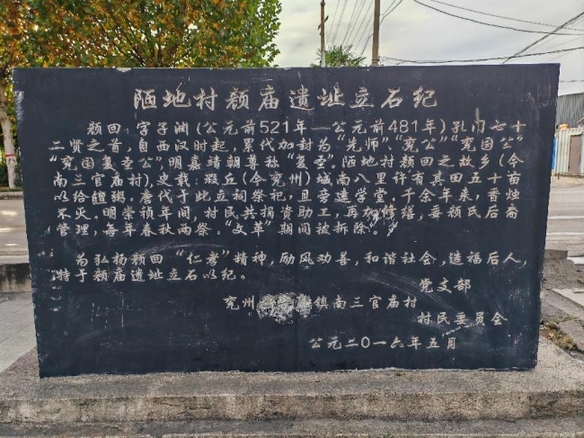 陋地村颜庙遗址立石纪
颜回：字子渊（公元前521年—公元前481年）孔门七十
二贤之首，自西汉时起，累代加封为“先师”、“兖公”“兖国公”
“兖国复圣公”明嘉靖朝尊称“复圣”，陋地村颜回之故乡（今
南三官庙村），史载，瑕丘（今兖州）城南八里许有其田五十亩
以给饘粥，唐代于此立祠祭祀，且营造学堂，千余年来，香烛
不灭。明崇祯年间，村民共捐资助工，再次修缮，每颜氏后裔
管理，每年春秋两祭。“文革”期间被拆除。
为弘扬颜回“仁孝”精神，励风劝善，和谐社会，造福后人，
特于颜庙遗址立石以纪。
党支部
兖州 镇南三官庙村
村民委员会
公元二〇一六年五月